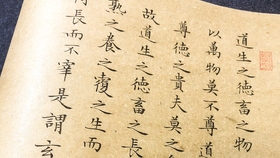 道生之德畜之物
以萬物莫不尊道
尊德之貴夫莫之
故道生之德畜之長
熟之養之覆之生而
長而不宰是謂玄